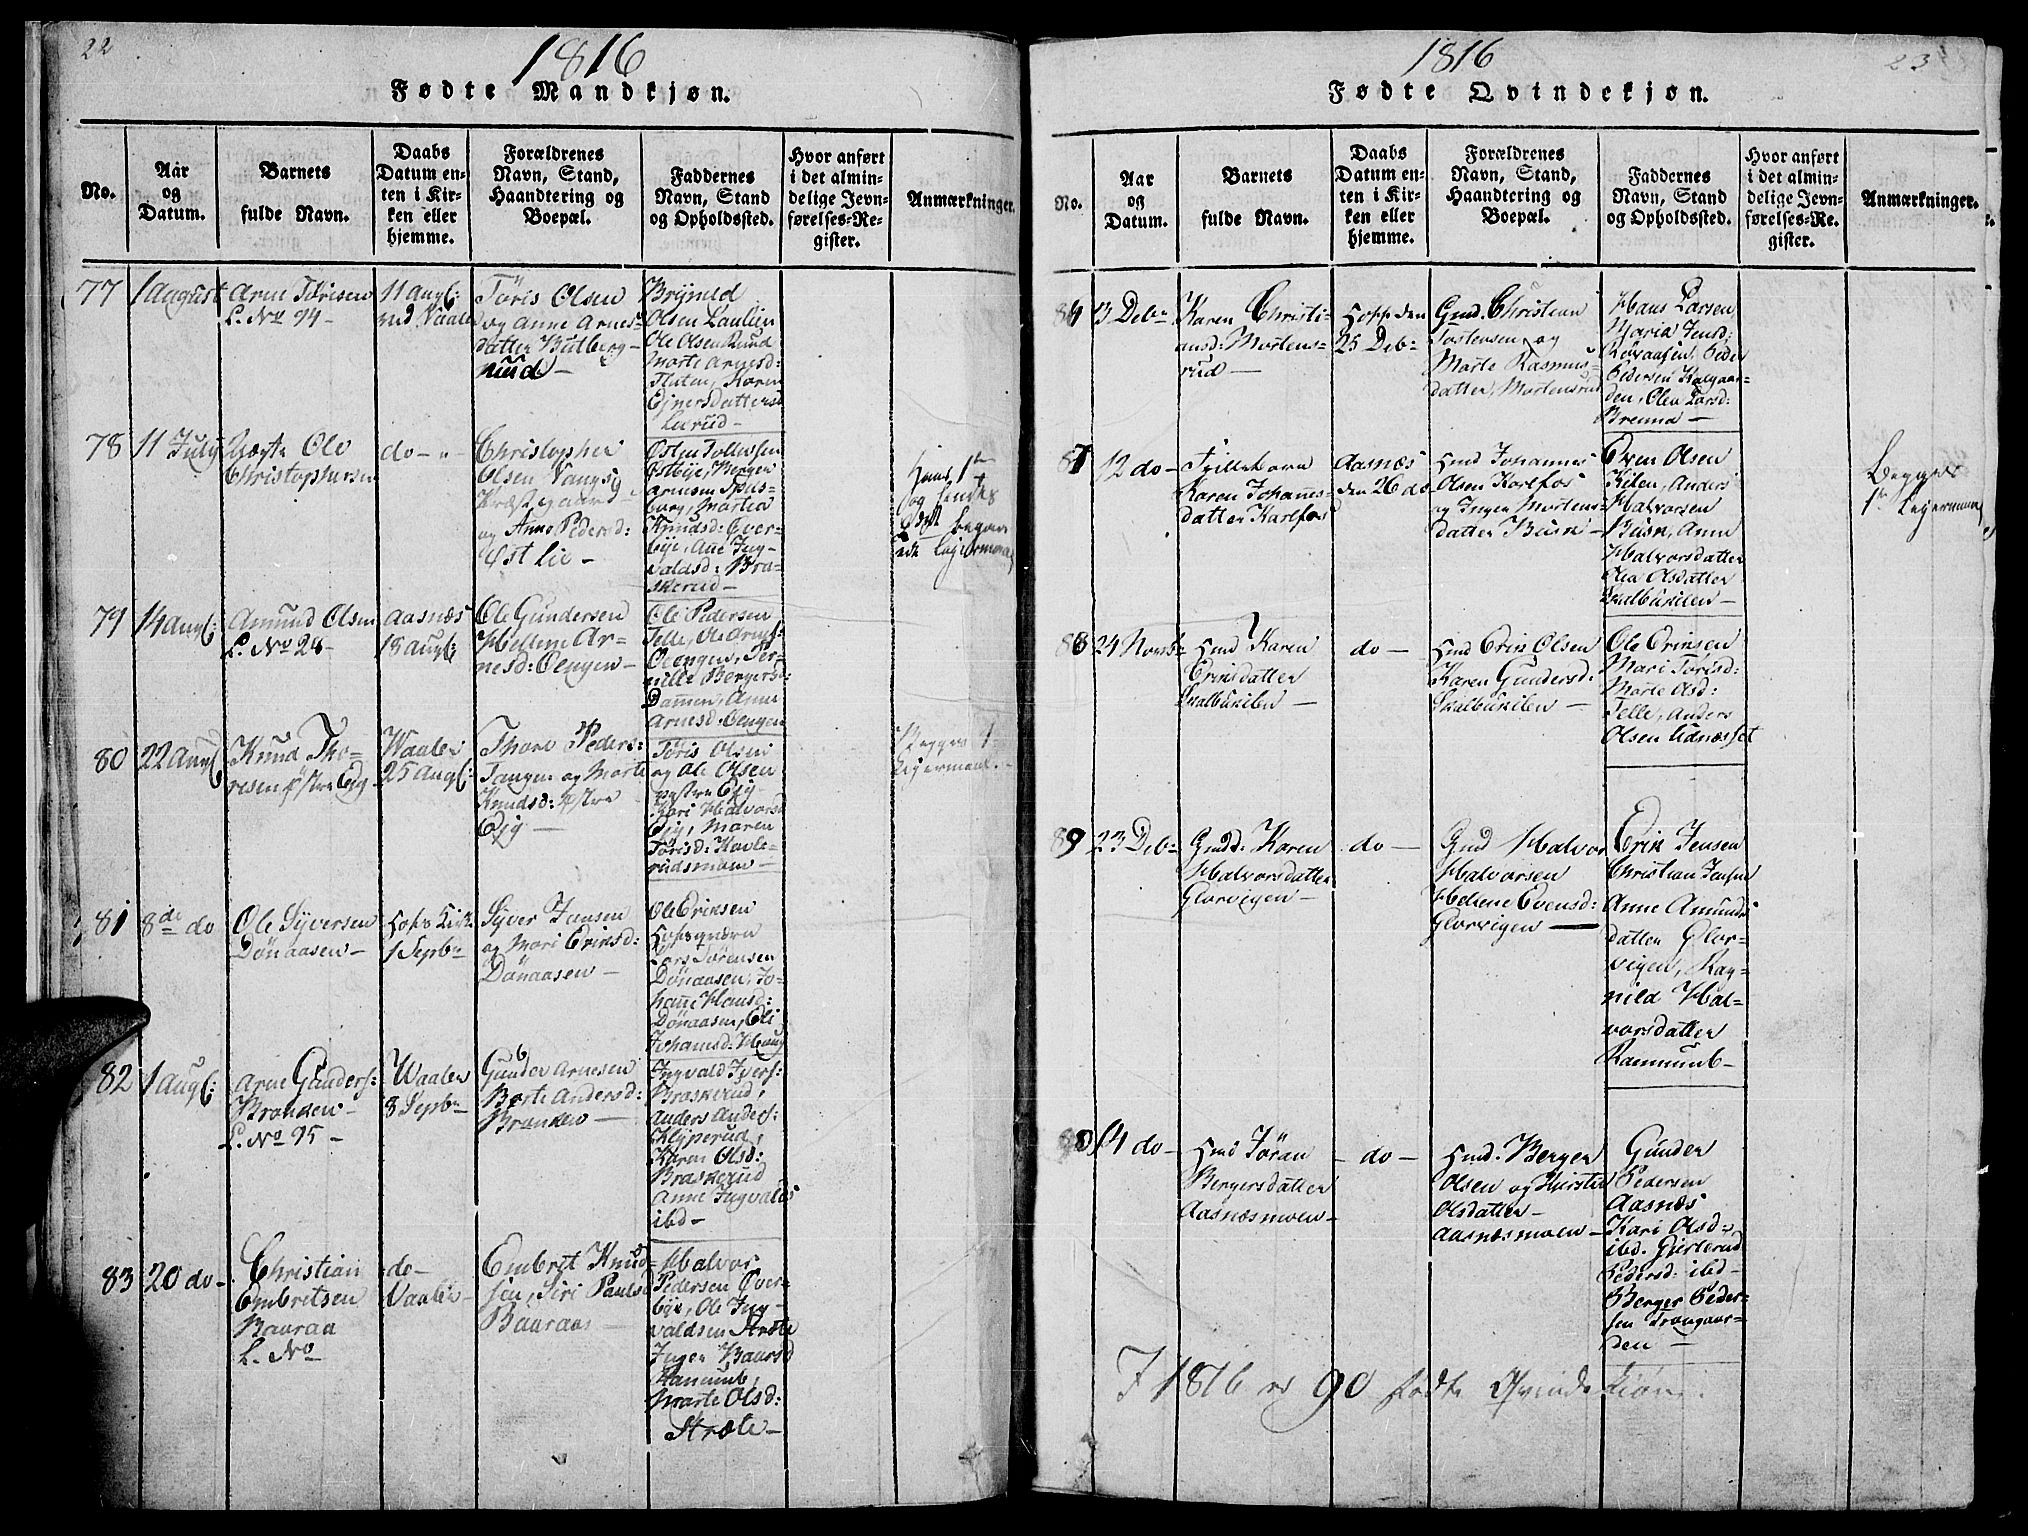 22
1816
Fødte Mandkjøn.
No.
Aar
og
Datum.
Barnets
fulde Navn.
Daabs
Datum en-
ten i Kir-
ken eller
hjemme.
Forældrenes
Navn, Stand,
Haandtering og
Boepæl.
Faddernes
Navn, Stand
og Opholdssted.
Hvor anført
i det almin-
delige Jevn-
førelses-Re-
gister.
Anmærkninger.
77
1 August
Arne Törisen
L. No 94 -
11 Augl:
ved Vaaler
Töris Olsen
og Anne Arnes-
datter Butberg-
Olsen
Ole Olsen
Marte Arnesd:
Karen
Ejnersdatter
78
11 July
Uægte Ole
Christophersen
do - "
Christopher
Olsen Vangsg
Præstegaard
og Anne Pedersd:
Østlie -
Østen Tollefsen
Østbye, Berger
Arnesen Spils-
berg, Martea
Knudsd: Over-
bye, Ane Ing-
valdsd: Bra-
skerud -
Hans 1te
og hendes
79
14 Augl:
Amund Olsen
L. No 28 -
Aasnæs
18 Augl:
Ole Gundersen
Hellene Ar-
nesd: Oengen -
Ole Pedersen
Telle, Ole Arnes:
Oengen, Per-
nille Bergersd:
Dammen, Anne
Arnesd: Oengen
80
22 Augl
Knud Tho-
resen østre Eig
Waaler
25 Augl:
Thore Peders:
Tangen og Marte
Knudsd: østre
Ejg -
Töris Olsen
og Ole Olsen
østre Ejg
Kari Halvorsd
Ejg, Maren
Törisd: Kavle-
rudsmoen -
Begges 1te
Leiermaal. -
81
8de do
Ole Syversen
Dönaasen -
Hofs Kirk
1 Septbr
Syver Jonsen
og Mari Eriksd:
Dönaasen -
Ole Eriksen
Hofsquærn
Lars Sörensen
Dönaasen, Jo-
hanne Hansd:
Dönaasen, Eli
Johansd: Haug
82
1 Augl:
Arne Gunders:
Branden -
L. No 95 -
Waaler
8 Septbr
Gunder Arnesen
Berte Andersd:
Branden -
Ingvald Ivers:
Braskerud,
Anders Anders:
Klyperud,
Karen Olsd:
Braskerud
Anne Ingvalds
ibd -
83
20 do -
Christian
Embretsen
Bauraa
L. No
do -
Vaaler -
Embret Knud-
sen, Siri Paulsd
Bauraas -
Halvor
Pedersen Over-
bye, Ole Ing-
valdsen Stræte
Inger Baarsd
Ramund,
Marte Olsd:
Stræte -
1816
23
Fødte Qvindekjøn.
No.
Aar
og
Datum.
Barnets
fulde Navn.
Daabs
Datum en-
ten i Kir-
ken eller
hjemme.
Forældrenes
Navn, Stand,
Haandtering og
Boepæl.
Faddernes
Navn, Stand
og Opholdssted.
Hvor anført
i det almin-
delige Jevn-
førelses-Re-
gister.
Anmærkninger.
86
13 Debr
Karen Christi-
ansd: Mortens-
rud -
Hof den
25 Deb:
Gmd. Christian
Tostensen og
Marte Rasmus-
datter, Mortensrud
Hans Larsen
Maria Jensd:
Peder
Pedersen Kalgaar-
den, Olea Larsd:
Brenna -
87
12 do -
Tvillebarn
Karen Johannes-
datter Karlfos
Aasnæs
den 26 do
Hmd Johannes
Olsen Karlfos
og Inger Mortens-
datter Busk -
Even Olsen
Kilen, Anders
Halvorsen
Busk, Anne
Halvorsdatter
Olea Olsdatter
Skalbukilen -
Begges
1te Leiermaal
88
24 Novb-
Hmd Karen
Eriksdatter
Skalbukilen
do -
Hmd Erik Olsen
Karen Gundersd:
Skalbukilen -
Ole Eriksen
Mari Törisd:
Marte Olsd:
Telle, Anders
Olsen Udnæsset
89
23 Deb-
Gmd: Karen
Halvorsdatter
Glorvigen -
do -
Gmd Halvor
Halvorsen
Helene Evensd:
Glorvigen -
Erik Jensen
Christian Jensen
Anne Amunds
datter Glor-
vigen, Rag-
nild Hal-
vorsdatter
Ramund -
90
14 do -
Hmd Jöran
Bergersdatter
Aasnæsmoen -
- do -
Hmd. Berger
Olsen og Kirsten
Olsdatter -
Aasnæsmoen -
Gunder
Pedersen
Aasnæs
Kari Olsd:
ibd. Giertrud
Pedersd: ibd -
Berger Peder-
sen Trangaar-
den -
I 1816 er 90 fødte Qvindekiøn.